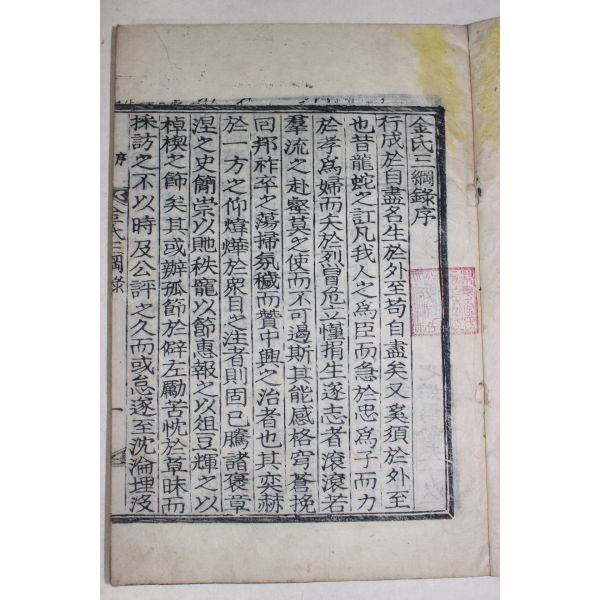 金氏三綱錄序
行成於自盡名生於外至苟自盡矣又奚須於外至
也昔龍蛇之訌凡我人之爲臣而急於忠爲子而力
於孝爲婦而矢於烈冒危立慬捐生遂志者滾滾若
羣流之赴壑莫之使而不可遏斯其能感格穹蒼挽
回邦祚卒之蕩掃氛穢而贊中興之治者也其奕赫
於一方之仰煒燁於衆目之注者則固已騰諸褒章
涅之史簡崇以貤秩寵以節惠報之以俎豆輝之以
棹楔之節矣其或辦孤節於僻左勵苦忱於草昧而
採訪之不以時及公評之久而或怠遂至沈淪埋沒
序
金氏三綱錄
一